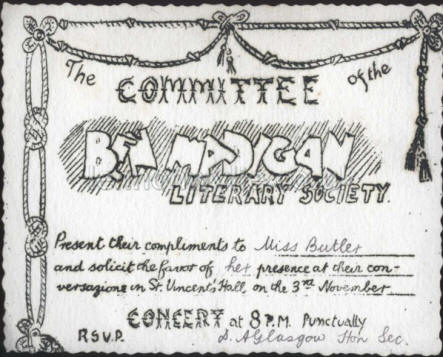 The COMMITTEE of the
BEN MADYGAN
LITERARY SOCIETY.
Present their compliments to Miss Butler
and solicit the favor of her presence at their con-
versazione in St. Vincent's Hall, on the 3rd November
CONCERT at 8 P.M. Punctually
R.S.V.P. D. A Glasgow Hon Sec.